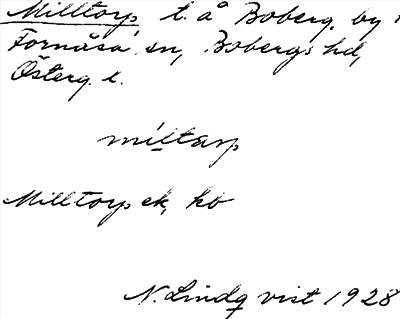 Milltorp, t. å Boberg, by i
Fornåsa sn, Bobergs hd,
Österg. l.
míltarp
Milltorp ek, kb
N. Lindqvist 1928